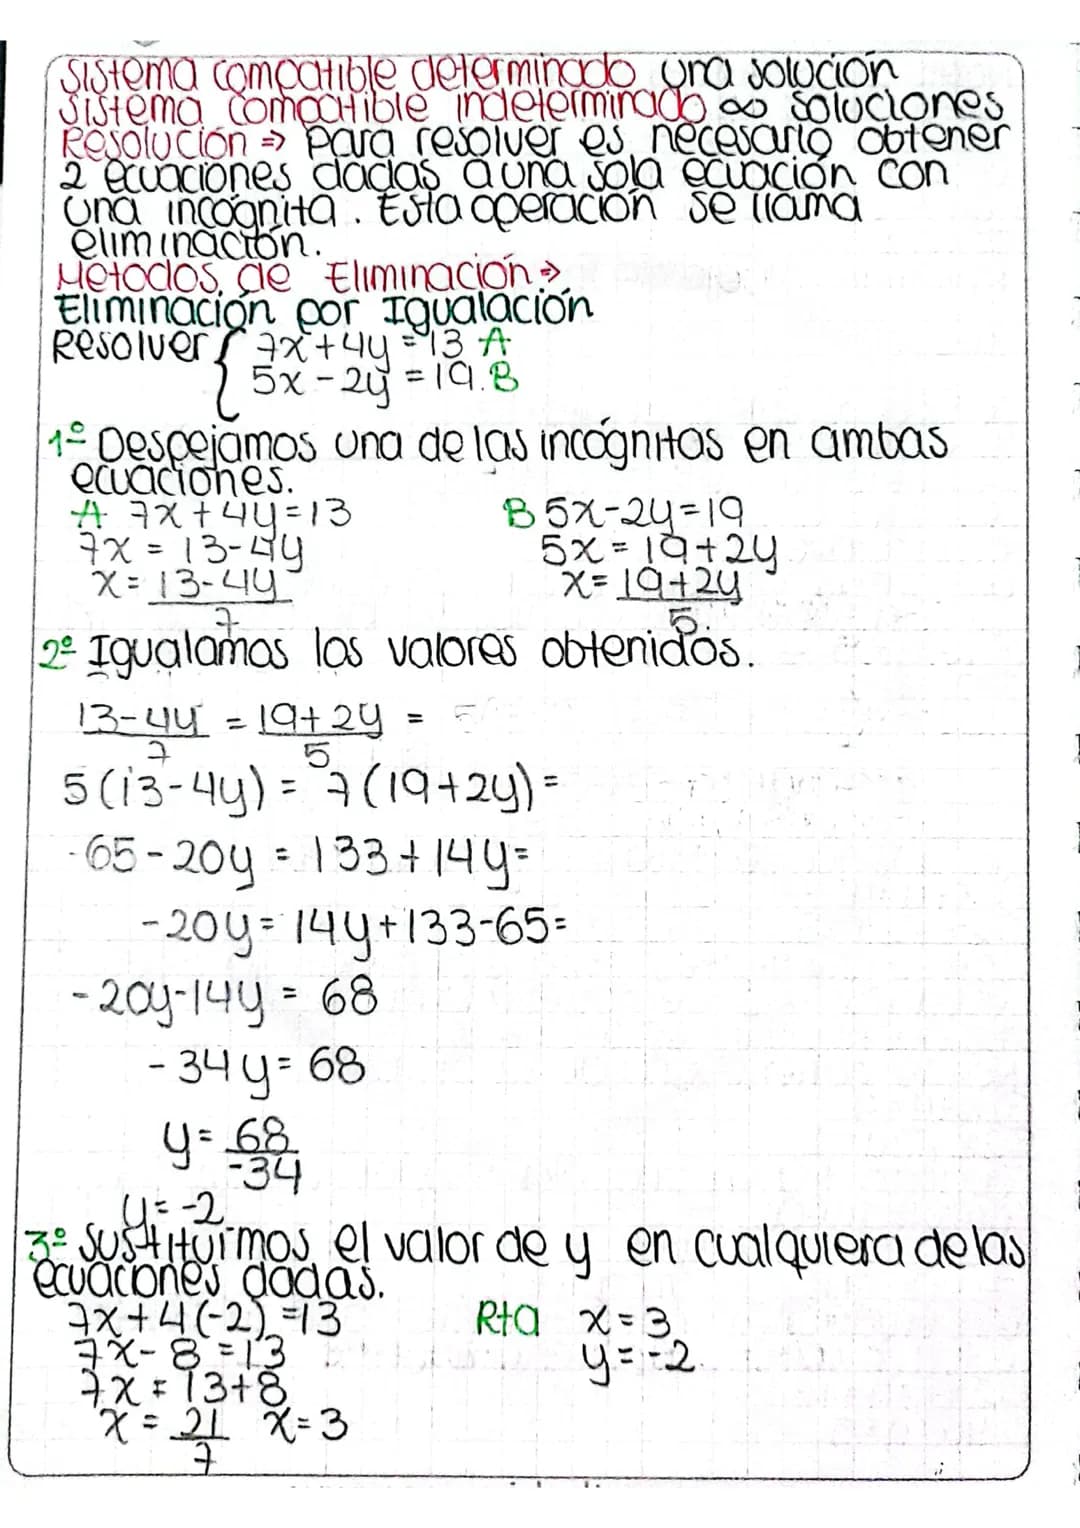 Sistema compatible determinado una solución
Sistema compatible indeterminado ∞ soluciones
Resolución => para resolver es necesario obtener
2 ecuaciones dadas a una sola ecuación con
una incógnita. Esta operación se llama
eliminación.
Metodos de Eliminación =>
Eliminación por Igualación
Resolver { 7x+4y = 13 A
5x-2y = 19. B
1º Despejamos una de las incógnitas en ambas
ecuaciones.
A 7x+4y=13 B 5x-2y=19
7x = 13-4y 5x = 19+2y
x = 13-4y x= 19+2y
7 5.
2º Igualamos los valores obtenidos.
13-4y = 19+2y =
7 5
5(13-4y) = 7(19+2y)=
65-20y = 133+14y=
-20y= 14y+133-65=
-20y-14y = 68
-34y= 68
y= 68
-34
y= -2
3º Sustituimos el valor de y en cualquiera de las
ecuaciones dadas.
7x+4(-2)=13 Rta x=3
7x-8=13 y=-2
7x=13+8
x = 21 x=3
7